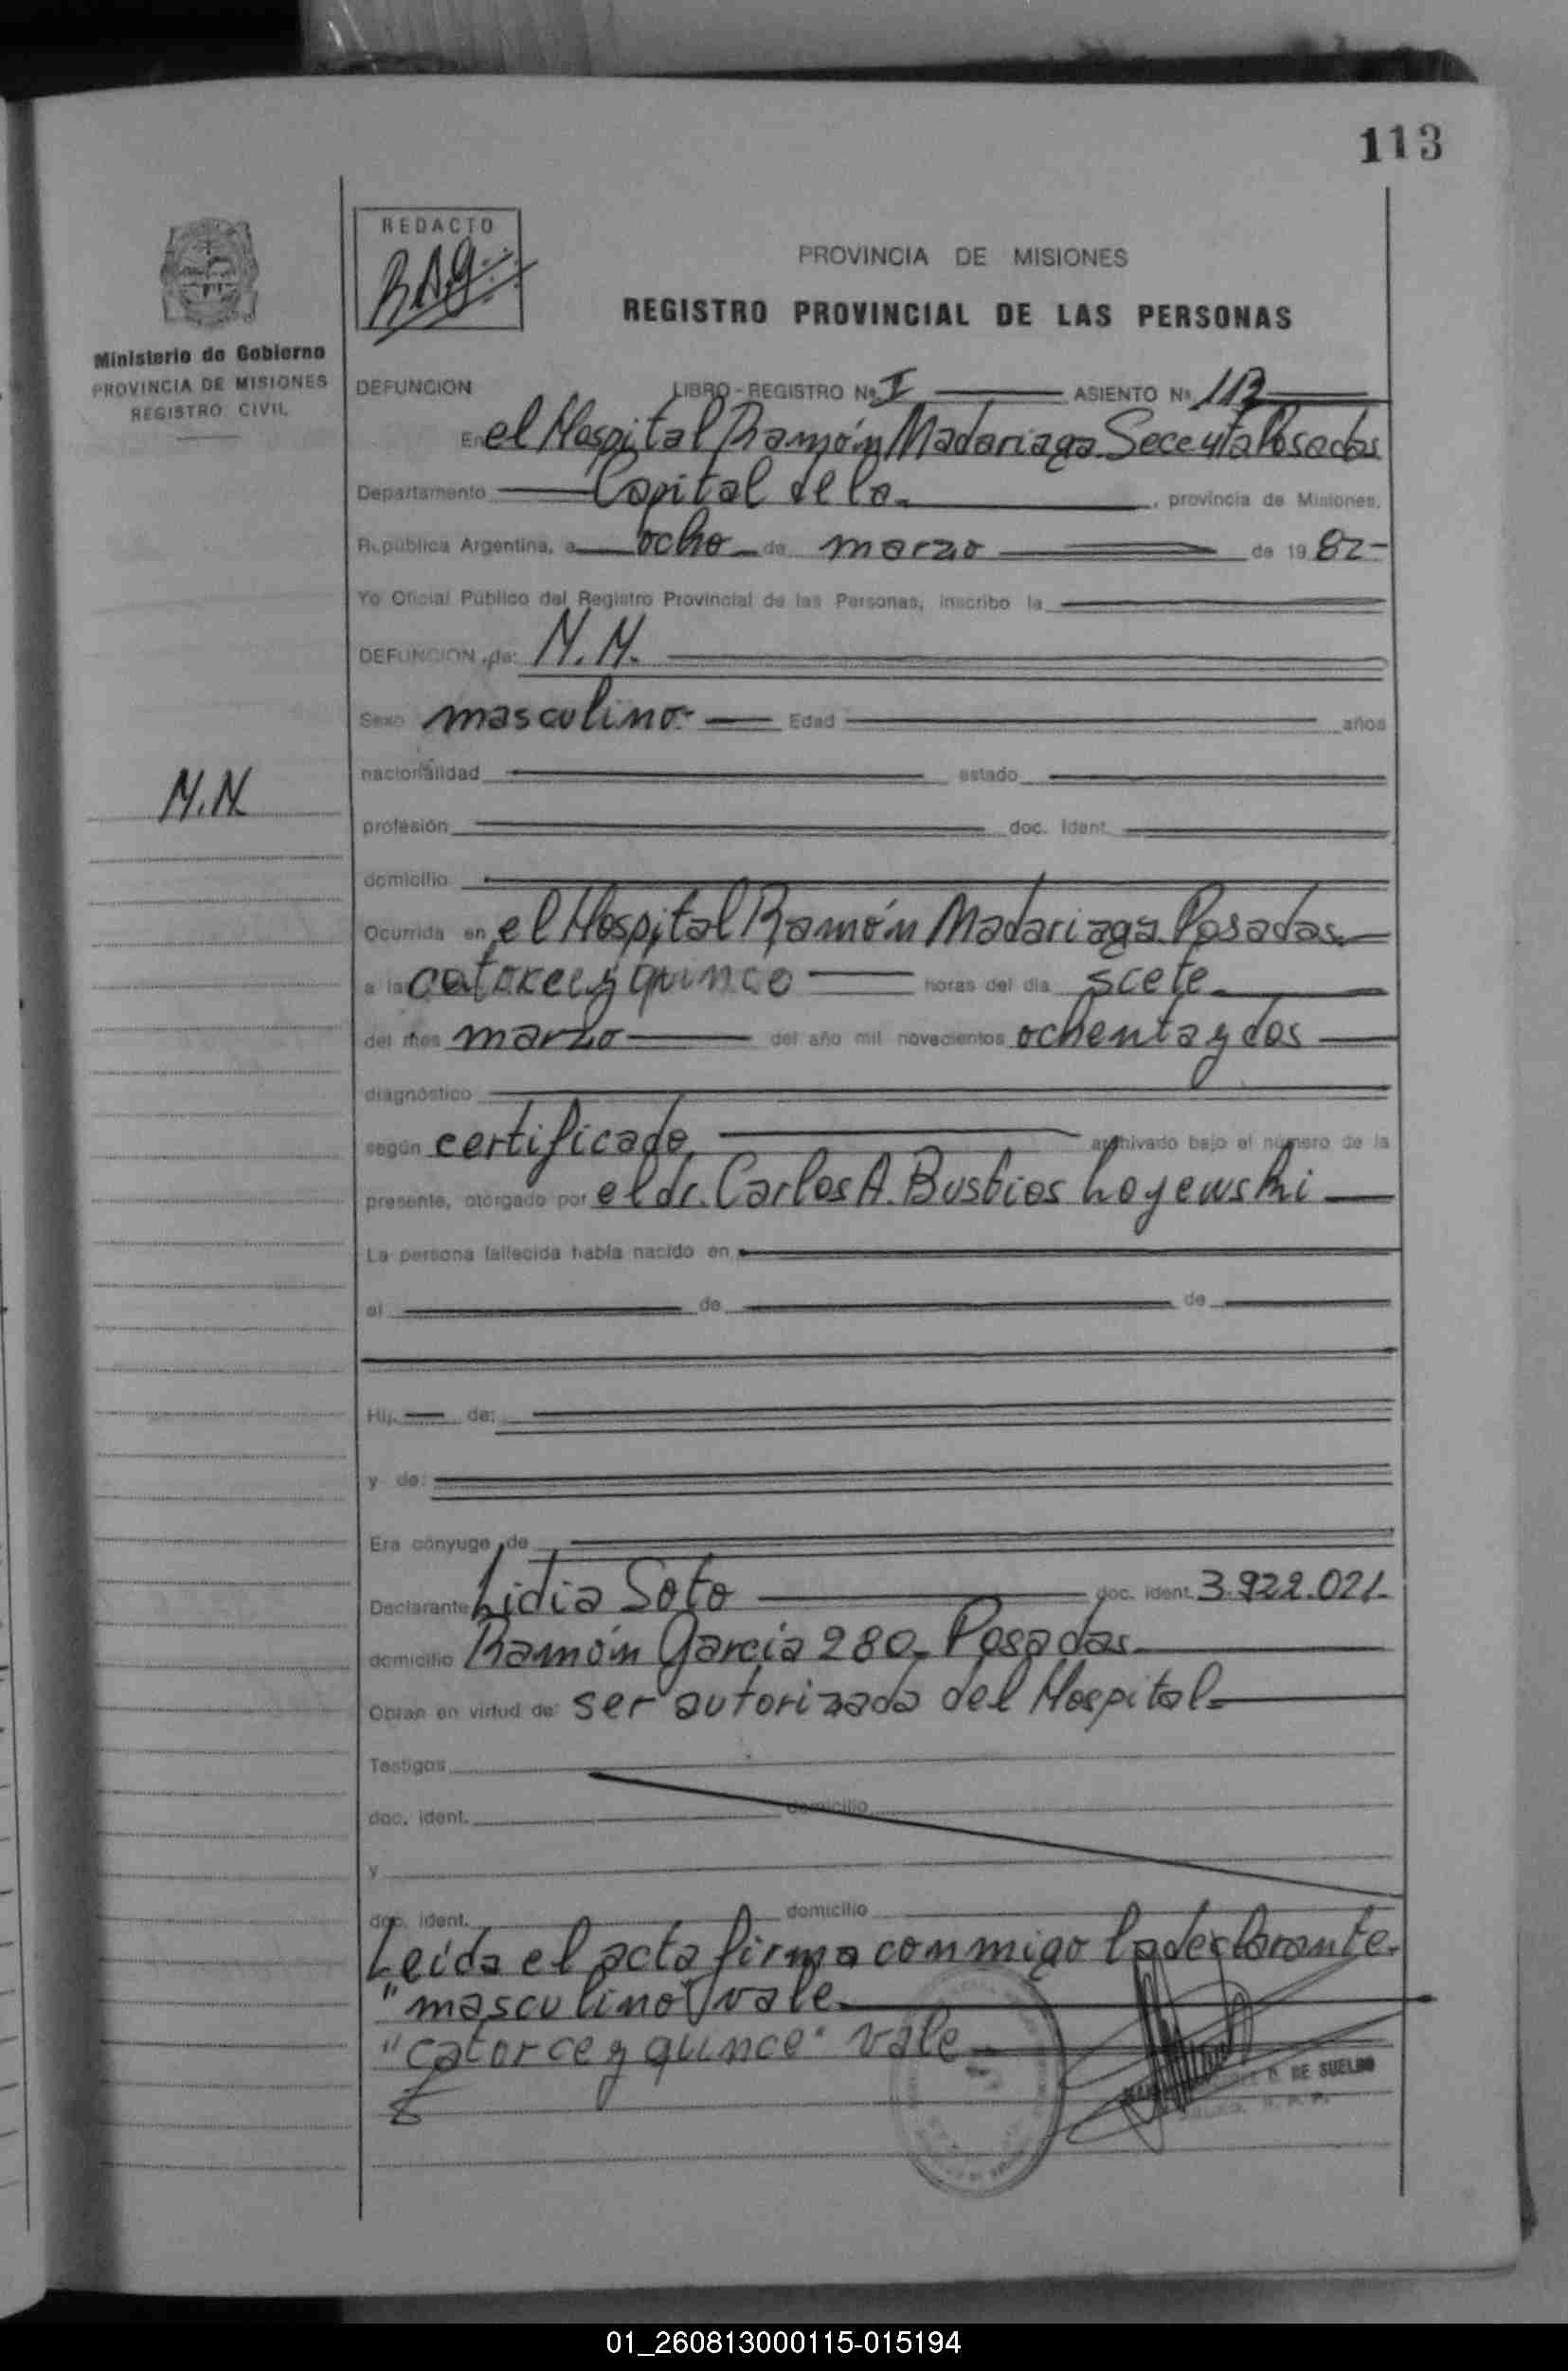 113
REDACTO
PROVINCIA DE MISIONES
REGISTRO PROVINCIAL DE LAS PERSONAS
Ministerio de Gobierno
PROVINCIA DE MISIONES
REGISTRO CIVIL
DEFUNCION LIBRO-REGISTRO Nº I ASIENTO Nº 113
En el Hospital Ramón Madariaga Posadas
Departamento Capital de la provincia de Misiones,
República Argentina, a ocho de marzo de 1982
Yo Oficial Público del Registro Provincial de las Personas, inscribo la
DEFUNCION de: N.N.
Sexo masculino Edad años
nacionalidad estado
N.N.
profesión doc. ident.
domicilio
Ocurrida en el Hospital Ramón Madariaga Posadas
a las catorce y quince horas del día siete
del mes marzo del año mil novecientos ochenta y dos
diagnóstico
según certificado archivado bajo el número de la
presente, otorgado por el dr. Carlos A.
La persona fallecida había nacido en
el de de
Hij de:
y de:
Era cónyuge de
Declarante Lidia Soto doc. ident. 3.922.021
domicilio Ramón Garcia 280 Posadas
Obran en virtud de: ser autorizada del Hospital
Testigos
doc. ident. domicilio
y
doc. ident. domicilio
Leída el acta firma conmigo la declarante.
"masculino" vale
"catorce y quince" vale
DE SUELDO
01_260813000115-015194